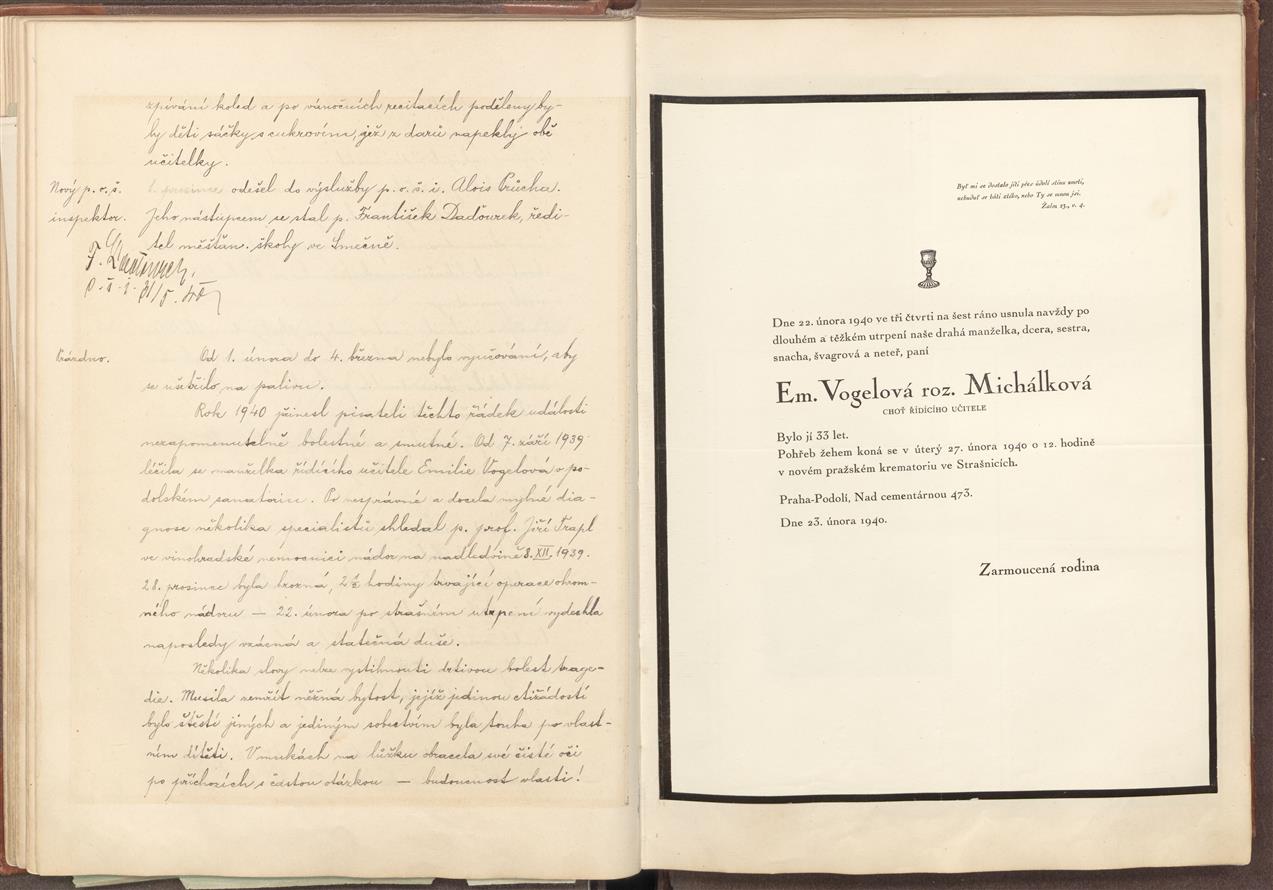 zpívání koled a po vánočních recitacích poděleny by-
ly děti sáčky s cukrovím, jež z darů napekly obě
učitelky.
Nový p. o. š.
inspektor.
1. prosince odešel do výslužby p. o. š. i. Alois Průcha.
Jeho nástupcem se stal p. František Daďourek, ředi-
tel měšťan. školy ve Smečně.
F.
o. š. i. 31/5. 40
Prázdno.
Od 1. února do 4. března nebylo vyučování, aby
se ušetřilo na palivu.
Rok 1940 přinesl pisateli těchto řádek události
nezapomenutelně bolestné a smutné. Od 7. září 1939
léčila se manželka řídícího učitele Emilie Vogelová v po-
dolském sanatoriu. Po nesprávné a docela mylné dia-
gnose několika specialistů shledal p. prof. Jiří Trapl
ve vinohradské nemocnici nádor na nadledvině 8. XII. 1939.
28. prosince byla hrozná, 2½ hodiny trvající operace ohrom-
ného nádoru — 22. února po strašném utrpení vydechla
naposledy vzácná a statečná duše.
Několika slovy nelze vystihnouti drtivou bolest trage-
die. Musila zemřít něžná bytost, jejíž jedinou ctižádostí
bylo štěstí jiných a jediným sobectvím byla touha po vlast-
ním dítěti. V mukách na lůžku obracela své čisté oči
po příchozích s častou otázkou — budoucnost vlasti!
Byť mi se dostalo jíti přes údolí stínu smrti,
nebuduť se báti zlého, nebo Ty se mnou jsi.
Žalm 23., v. 4.
Dne 22. února 1940 ve tři čtvrti na šest ráno usnula navždy po
dlouhém a těžkém utrpení naše drahá manželka, dcera, sestra,
snacha, švagrová a neteř, paní
Em. Vogelová roz. Michálková
CHOŤ ŘÍDÍCÍHO UČITELE
Bylo jí 33 let.
Pohřeb žehem koná se v úterý 27. února 1940 o 12. hodině
v novém pražském krematoriu ve Strašnicích.
Praha-Podolí, Nad cementárnou 473.
Dne 23. února 1940.
Zarmoucená rodina